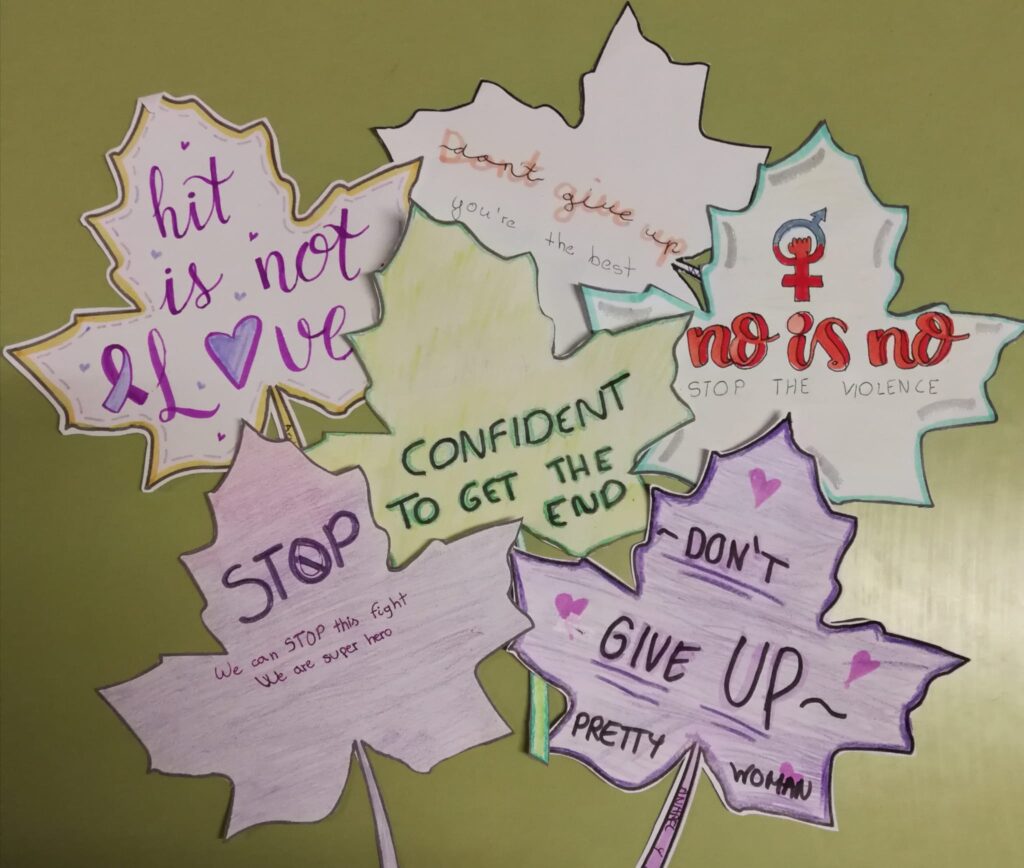 hit
is not
Love
Dont give up
dont give up
you're the best
no is no
STOP THE VIOLENCE
CONFIDENT
TO GET THE
END
STOP
We can STOP this fight
We are super hero
~DON'T
GIVE UP~
PRETTY
WOMAN